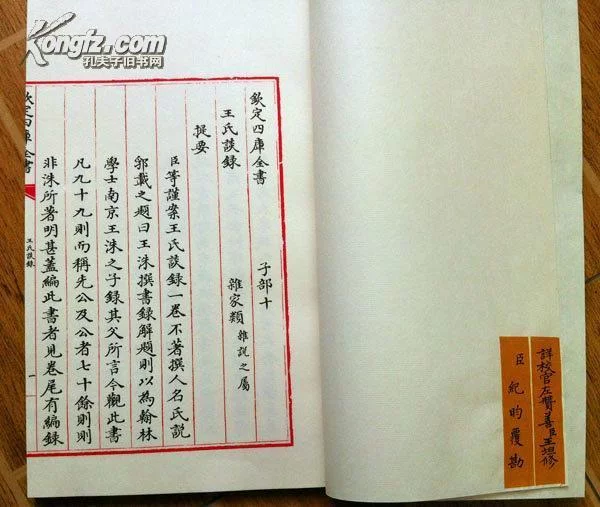 Kongfz.com
孔夫子旧书网
詳校官左贊善臣王坦修
臣紀昀覆勘
欽定四庫全書 子部十
王氏談録 雜家類 雜說之屬
提要
臣等謹案王氏談録一卷不著撰人名氏説
郛載之題曰王洙撰書録解題則以為翰林
學士南京王洙之子録其父所言今觀此書
凡九十九則而稱先公及公者七十餘則則
非洙所著明甚蓋編此書者見卷尾有編録
欽定四庫全書
王氏談録
一